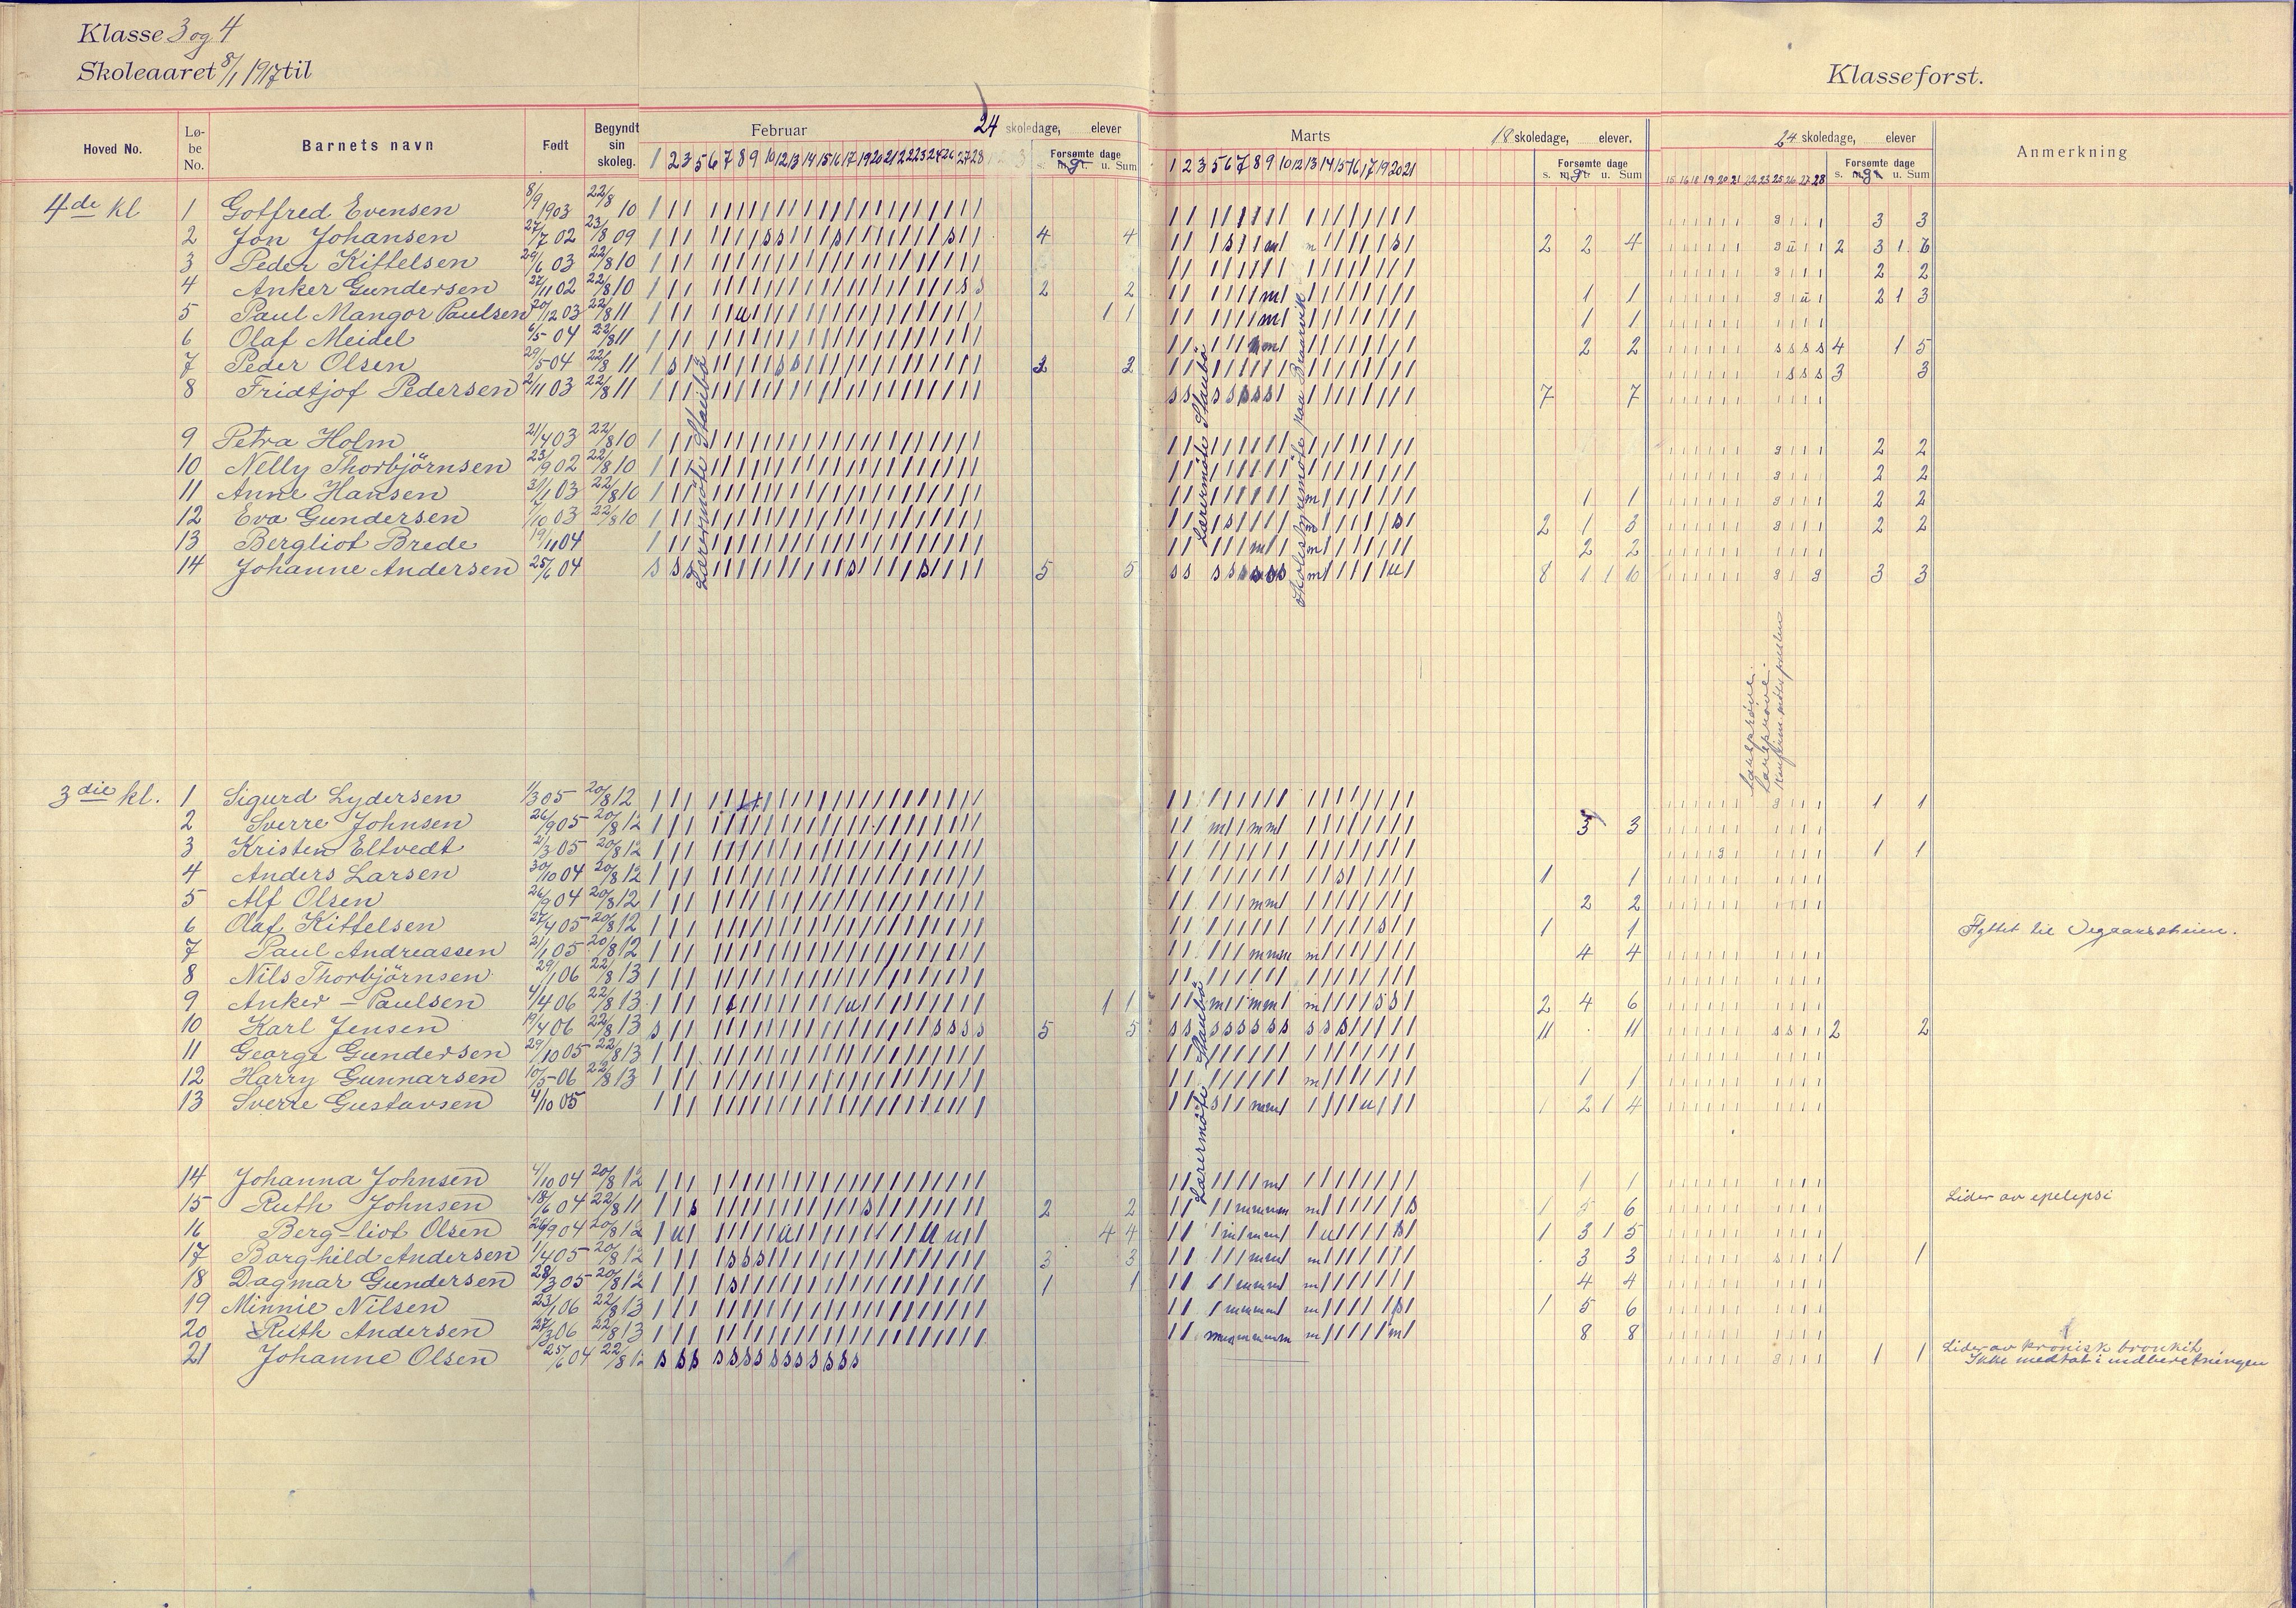 Klasse 3 og 4
Skoleaaret 8/1 1917 til
Klasseforst.
Hoved No. Løbe No. Barnets navn Født Begyndt sin skoleg. Februar 24 skoledage, elever Forsømte dage s. m.gr. u. Sum Marts 18 skoledage, elever. Forsømte dage s. m.gr. u. Sum 24 skoledage, elever Forsømte dage s. m.gr. u. Sum Anmerkning
1 2 3 5 6 7 8 9 10 12 13 14 15 16 17 19 20 21 22 23 24 26 27 28
1 2 3 5 6 7 8 9 10 12 13 14 15 16 17 19 20 21
15 16 18 19 20 21 22 23 25 26 27 28
4de kl 1 Gotfred Evensen 8/9 1903 22/8 10 3 3
2 Jon Johansen 27/7 02 23/8 09 4 4 2 2 4 2 3 1 6
3 Peder Kittelsen 29/6 03 22/8 10 2 2
4 Anker Gundersen 27/11 02 22/8 10 2 2 1 1 2 1 3
5 Paul Mangor Paulsen 20/12 03 22/8 11 1 1 1 1
6 Olaf Meidel 6/5 04 22/8 11 2 2 4 1 5
7 Peder Olsen 29/5 04 22/8 11 3 3 3
8 Fridtjof Pedersen 2/11 03 22/8 11 7 7
9 Petra Holm 21/4 03 22/8 10 2 2
10 Nelly Thorbjörnsen 23/9 02 22/8 10 2 2
11 Anne Hansen 31/1 03 22/8 10 1 1 2 2
12 Eva Gundersen 7/10 03 22/8 10 2 1 3 2 2
13 Bergliot Brede 19/11 04 2 2
14 Johanne Andersen 25/6 04 5 5 8 1 1 10 3 3
Lærermöte Staubö
Lærermöte Staubö
Skolestyremöte paa Braarvik
3die kl. 1 Sigurd Lydersen 1/3 05 20/8 12 1 1
2 Sverre Johnsen 26/9 05 20/8 12 3 3
3 Kristen Eltvedt 2/3 05 20/8 12 1 1
4 Anders Larsen 30/10 04 20/8 12 1 1
5 Alf Olsen 26/9 04 20/8 12 2 2
6 Olaf Kittelsen 27/4 05 20/8 12 1 1 Flyttet til Vegaarsheien.
7 Paul Andreassen 21/1 05 20/8 12 4 4
8 Nils Thorbjörnsen 29/1 06 22/8 13
9 Anker - Paulsen 4/4 06 22/8 13 1 1 2 4 6
10 Karl Jensen 19/4 06 22/8 13 5 5 11 11 2 2
11 George Gundersen 29/10 05 22/8 13
12 Harry Gunnarsen 10/5 06 22/8 13 1 1
13 Sverre Gustavsen 4/10 05 1 2 1 4
Lærermöte Staubö
14 Johanna Johnsen 4/10 04 20/8 12 1 1
15 Ruth Johnsen 18/6 04 22/8 11 2 2 1 5 6 Lider av epelepsi
16 Berg-liot Olsen 26/9 04 20/8 12 4 4 1 3 1 5
17 Borghild Andersen 1/4 05 20/8 12 3 3 3 3 1 1
18 Dagmar Gundersen 28/3 05 20/8 12 1 1 4 4
19 Minnie Nilsen 23/1 06 22/8 13 1 5 6
20 Ruth Andersen 27/3 06 22/8 13 8 8
21 Johanne Olsen 25/6 04 22/8 12 1 1 Lider av kronisk bronkit
Ikke medtat i indberetningen